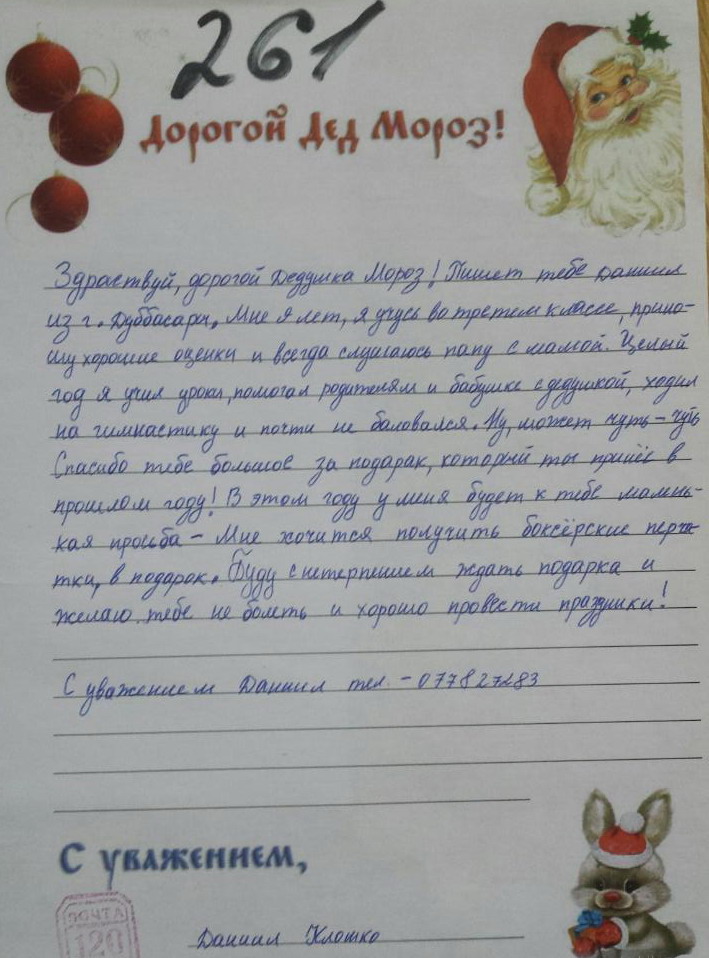 261
Дорогой Дед Мороз!
Здраствуй, дорогой Дедушка Мороз! Пишет тебе Даниил
из г. Дуббасары. Мне 9 лет, я учусь во третем классе, прино-
шу хорошие оценки и всегда слушаюсь папу с мамой. Целый
год я учил уроки, помогал родителям и бабушке с дедушкой, ходил
на гимнастику и почти не баловался. Ну, может чуть-чуть
Спасибо тебе большое за подарак, который ты принёс в
прошлом году! В этом году у меня будет к тебе малень-
кая прозьба - Мне хочится получить боксёрские перча-
тки, в подарок. Буду с нетерпением ждать подарка и
желаю тебе не болеть и хорошо провести праздники!
С уважением Даниил тел. - 077827283
С уважением,
ПОЧТА
120
Даниил Клошко